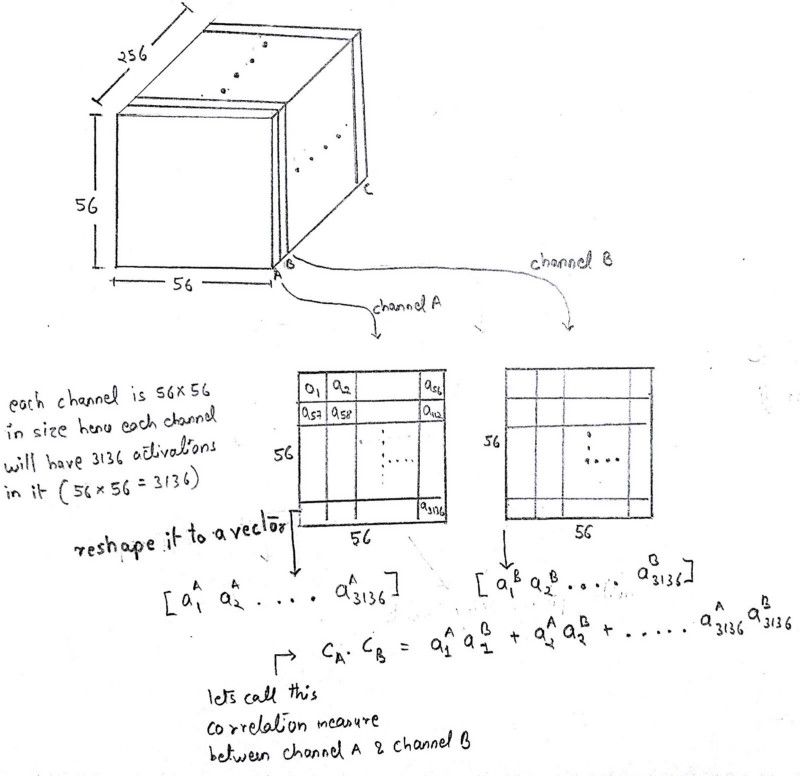 256
56
56
A
B
C
channel A
channel B
each channel is 56×56
in size henc each channel
will have 3136 activations
in it (56×56 = 3136)
a₁ a₂ a₅₆
a₅₇ a₅₈ a₁₁₂
a₃₁₃₆
56
56
56
56
reshape it to a vector
[a₁ᴬ a₂ᴬ .... a₃₁₃₆ᴬ]
[a₁ᴮ a₂ᴮ .... a₃₁₃₆ᴮ]
C_A . C_B = a₁ᴬ a₁ᴮ + a₂ᴬ a₂ᴮ + ...... a₃₁₃₆ᴬ a₃₁₃₆ᴮ
lets call this
correlation measure
between channel A & channel B